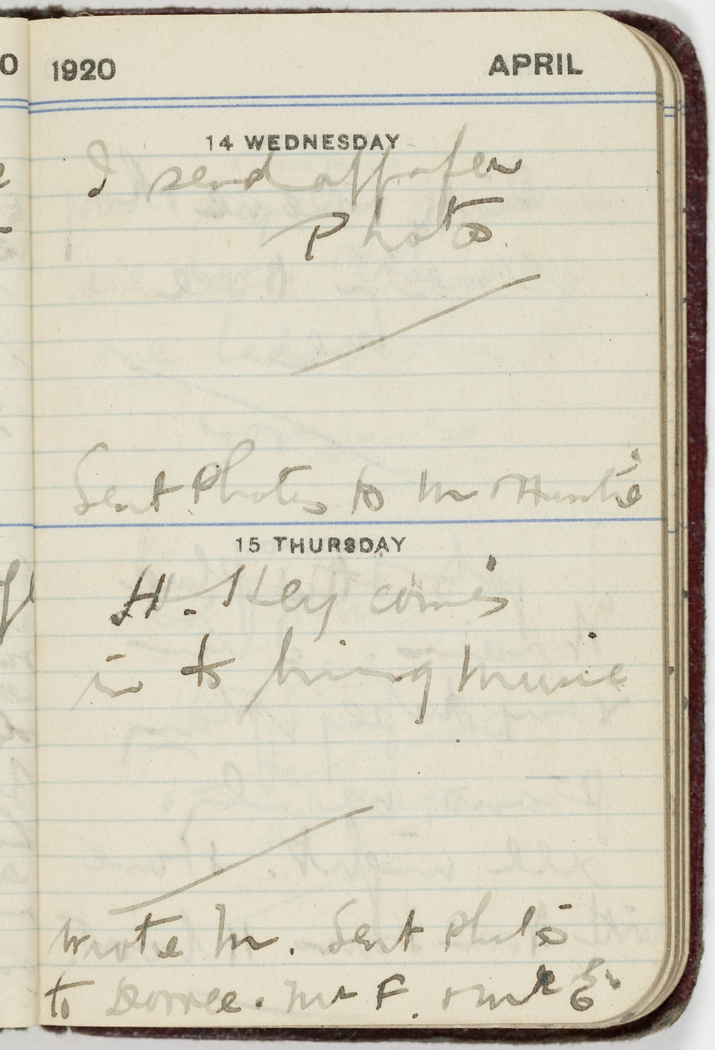 0 1920 APRIL
14 WEDNESDAY
I send off a few
Photos
Sent Photos to Mr
15 THURSDAY
H. Key comes
in to bring music
Wrote M. Sent Photos
to Mr F.